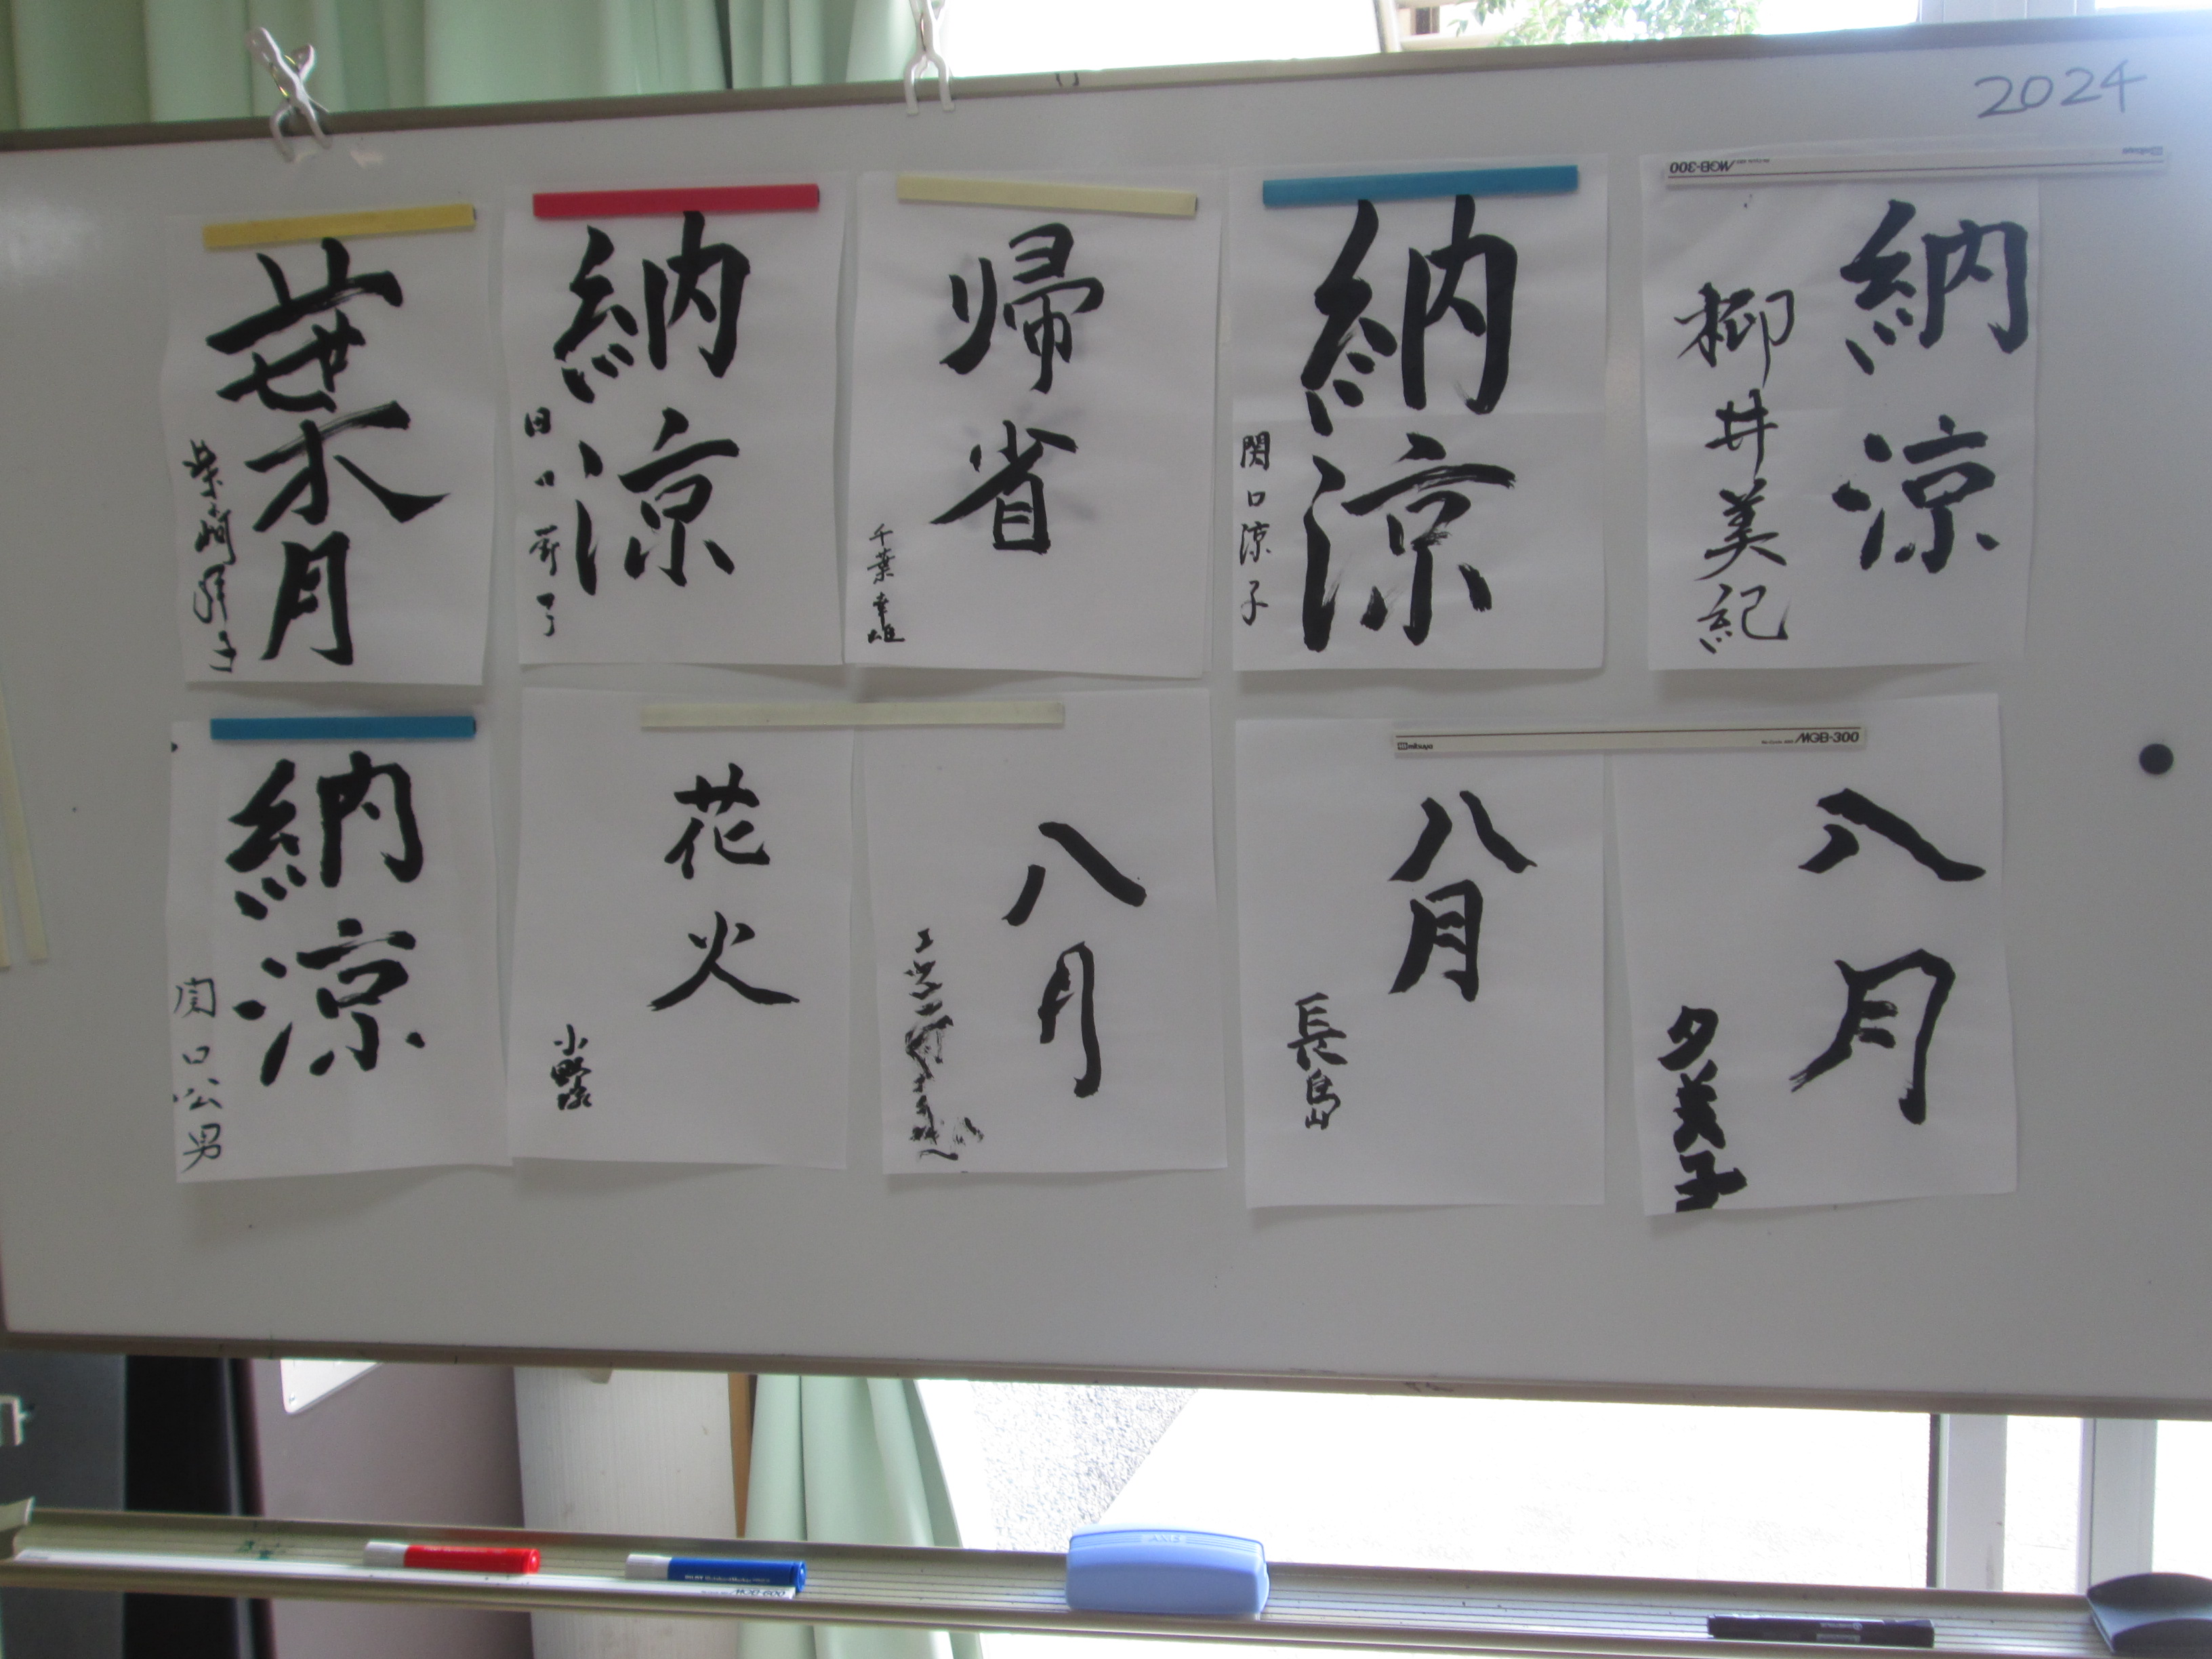 2024
納涼
柳井美紀
納涼
関口涼子
帰省
千葉幸雄
納涼
葉月
八月
夕美子
八月
長島
八月
花火
小野塚
納涼
関口公男
MGB-300
mitsuya
mitsuya
MGB-300
AXIS